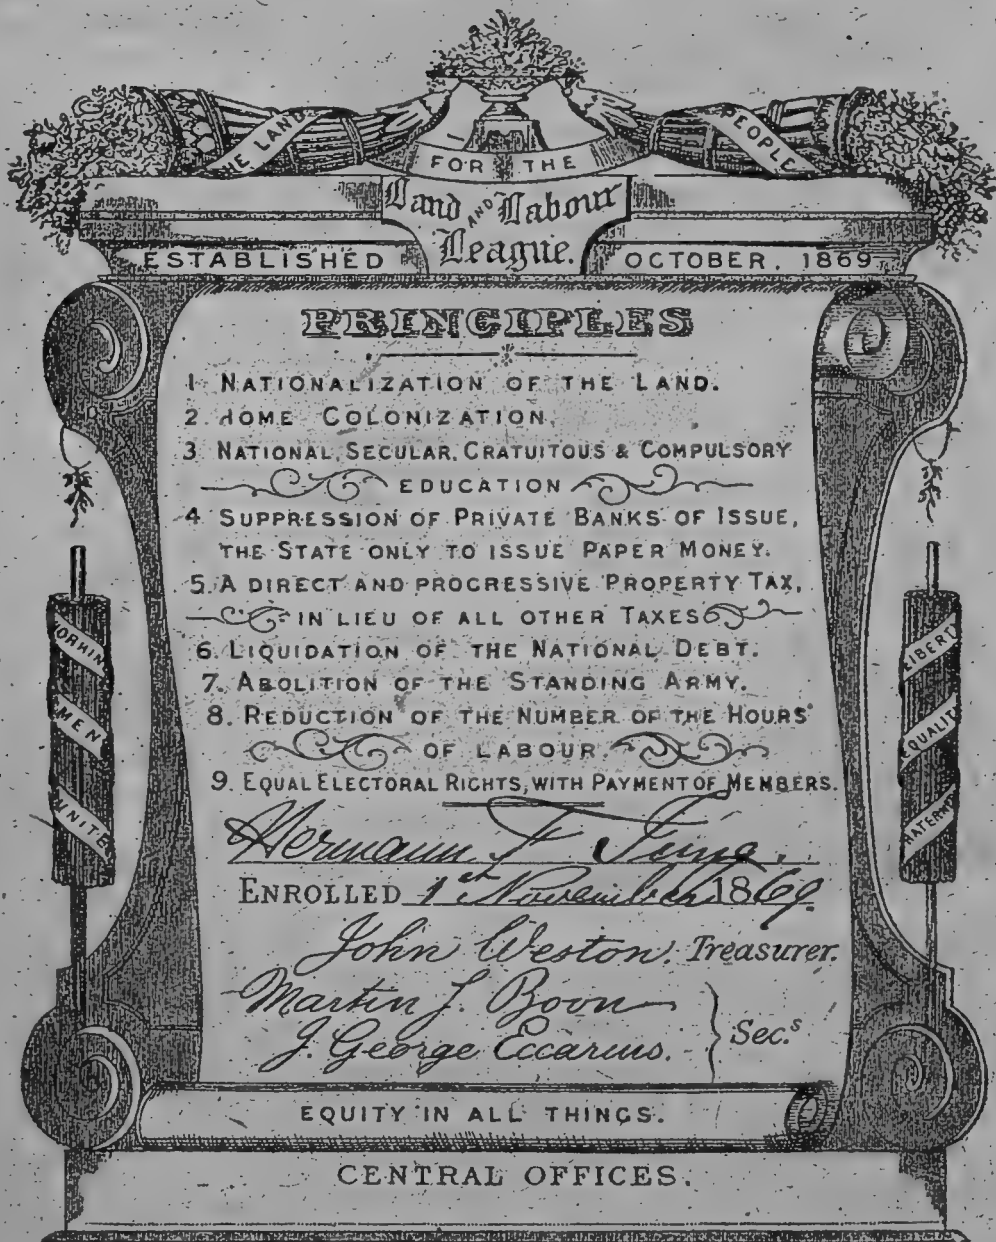 THE LAND
FOR THE
PEOPLE
Land AND Labour
League.
ESTABLISHED OCTOBER, 1869
PRINCIPLES
1 NATIONALIZATION OF THE LAND.
2. HOME COLONIZATION.
3 NATIONAL, SECULAR, GRATUITOUS & COMPULSORY
EDUCATION
4 SUPPRESSION OF PRIVATE BANKS OF ISSUE,
THE STATE ONLY TO ISSUE PAPER MONEY.
5. A DIRECT AND PROGRESSIVE PROPERTY TAX,
IN LIEU OF ALL OTHER TAXES
6. LIQUIDATION OF THE NATIONAL DEBT.
7. ABOLITION OF THE STANDING ARMY.
8. REDUCTION OF THE NUMBER OF THE HOURS
OF LABOUR
9. EQUAL ELECTORAL RIGHTS, WITH PAYMENT OF MEMBERS.
Hermann F Jung.
ENROLLED 1st November 1869
John Weston. Treasurer.
Martin J. Boon
J. George Eccarius. Sec.s
EQUITY IN ALL THINGS.
CENTRAL OFFICES.
WORKIN
MEN
UNITE
LIBERT
EQUALIT
RATERNI